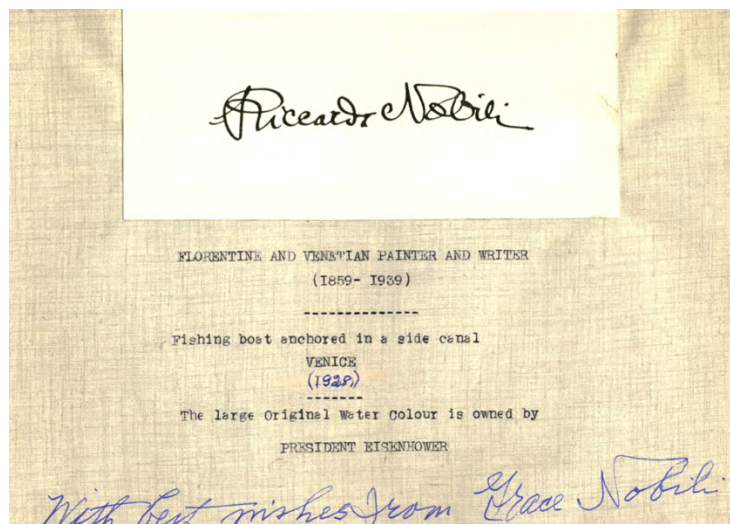 Riccardo Nobili
FLORENTINE AND VENETIAN PAINTER AND WRITER
(I859- I939)
--------------
Fishing boat anchored in a side canal
VENICE
(1928)
-------
The large Original Water Colour is owned by
PRESIDENT EISENHOWER
With best wishes from Grace Nobili